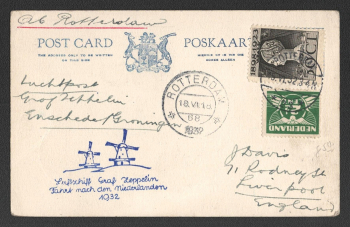 Ab Rotterdam
POST CARD
POSKAART
THE ADDRESS ONLY TO BE WRITTEN
ON THIS SIDE
Luchtpost
Graf Zeppelin
Enschede/Groningen
ROTTERDAM
18.VI.18
1932
1898 1923
NEDERLAND
Luftschiff Graf Zeppelin
Fahrt nach den Niederlanden
1932
J Davis
71 Rodney St
Liverpool
England